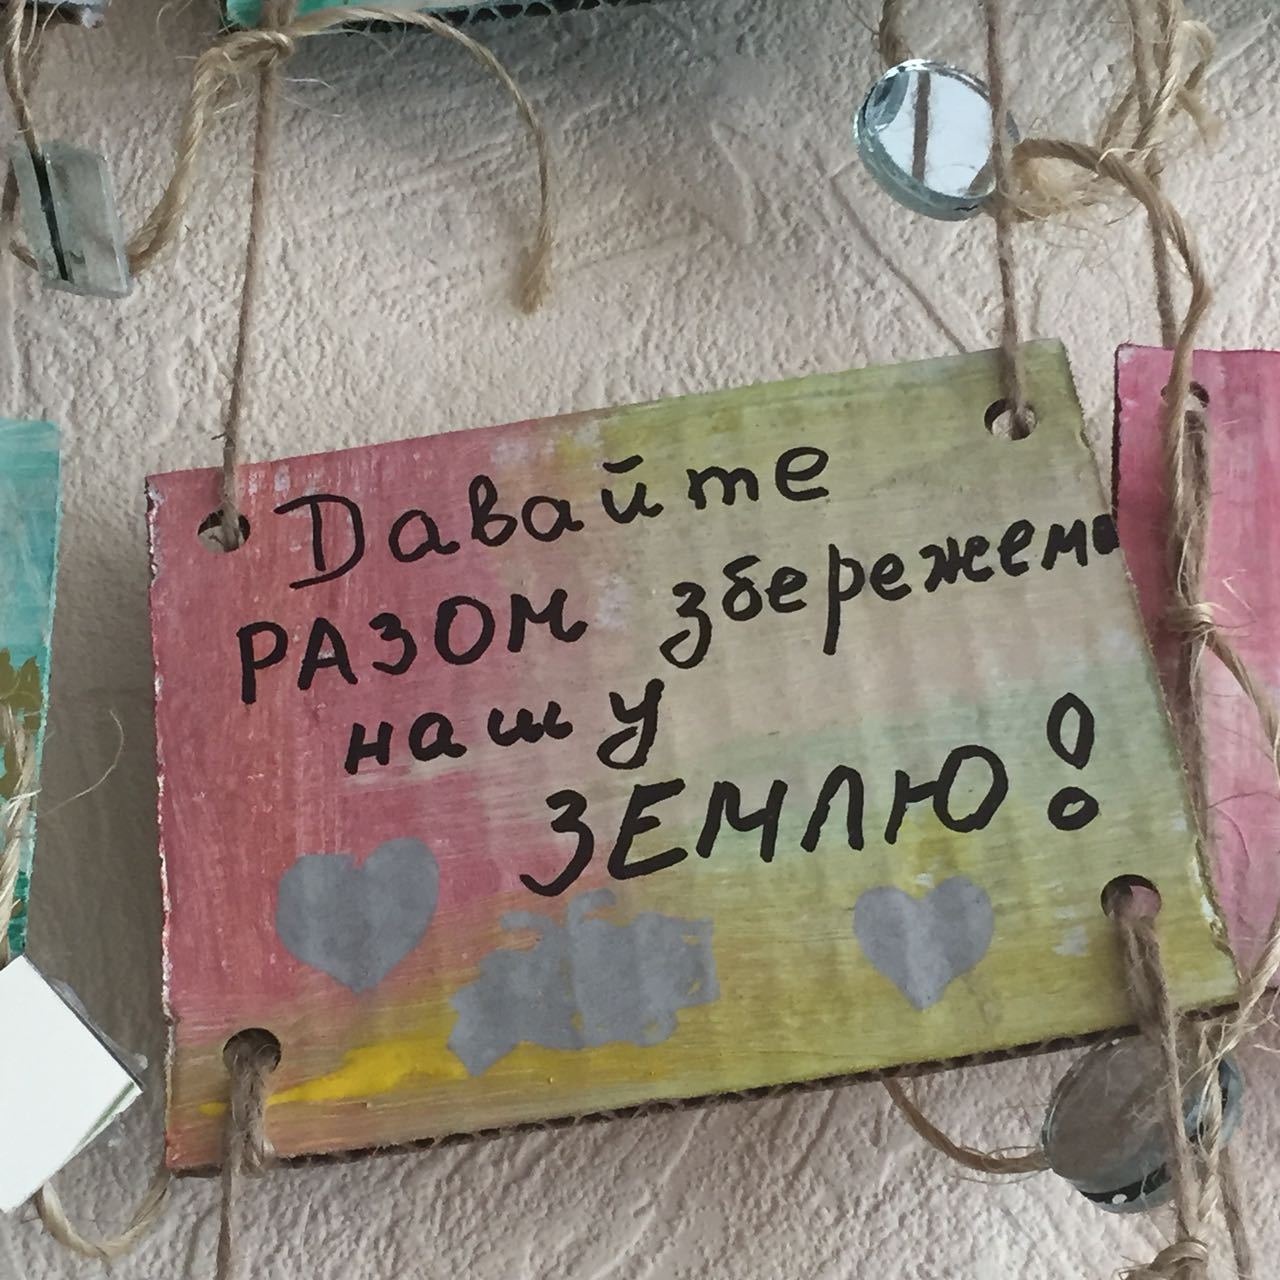 Давайте
РАЗОМ збережемо
нашу
ЗЕМЛЮ!